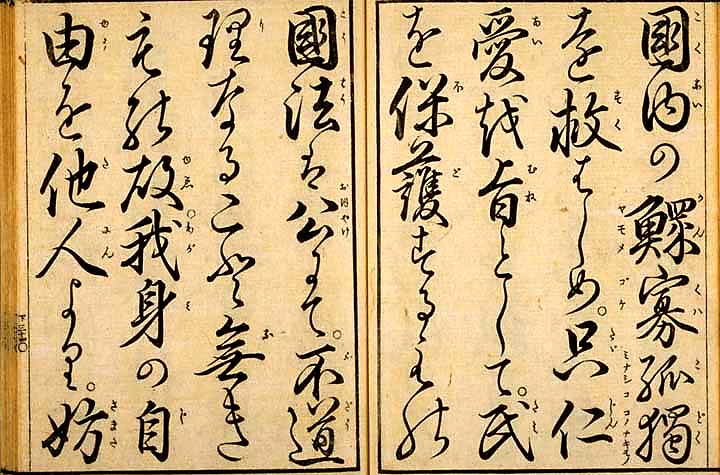 國内の鰥寡孤獨
を救はしめ。只仁
愛を旨として。民
を保護するもの
國法は公にて。不道
理なること無き
もの故我身の自
由を他人より。妨